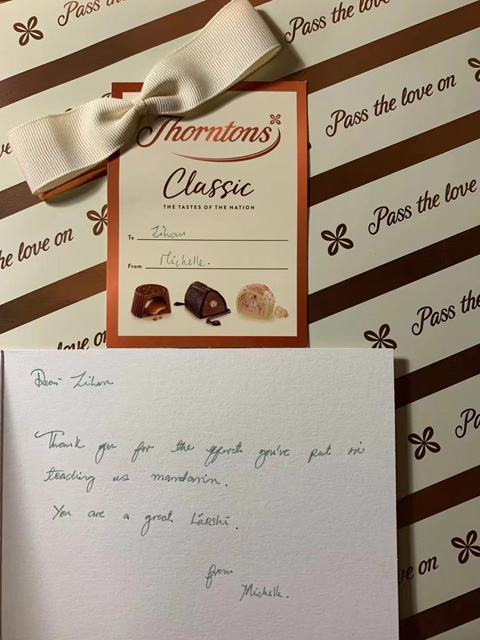 Pass the love on
Pass the love on
Pass the love
the love on
Pass the
Pa
e on
Thorntons
Classic
THE TASTES OF THE NATION
To Zihan
From Michelle.
Dear Zihan
Thank you for the efforts you've put in
teaching us mandarin.
You are a great Lǎoshī.
from
Michelle.